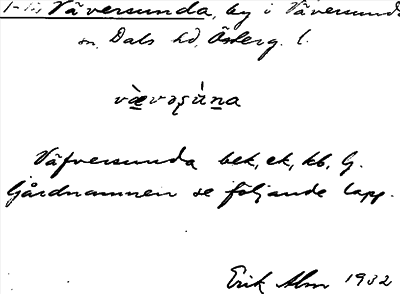 1-16 Väversunda, by i Väversunda
sn, Dals hd, Österg. l.
vævəʂùna
Väfversunda bek, ek, kb, G.
Gårdnamnen se följande lapp.
Erik Alm 1932